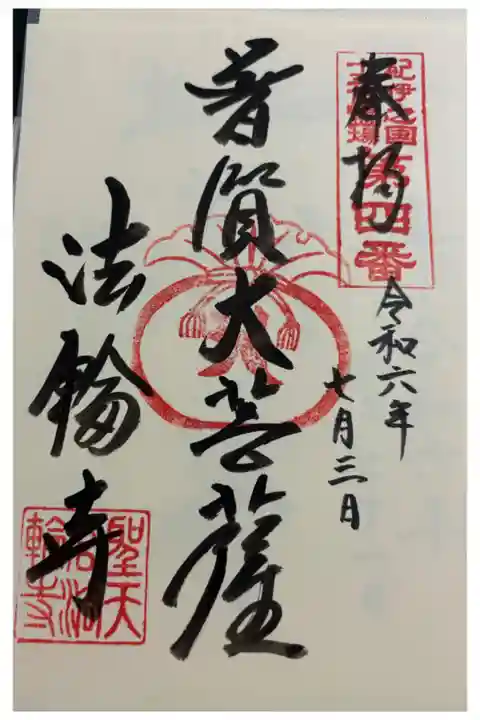 奉拝
紀伊之国
十三佛霊場
第四番
令和六年
七月三日
普賢大菩薩
法輪寺
聖天
法輪寺